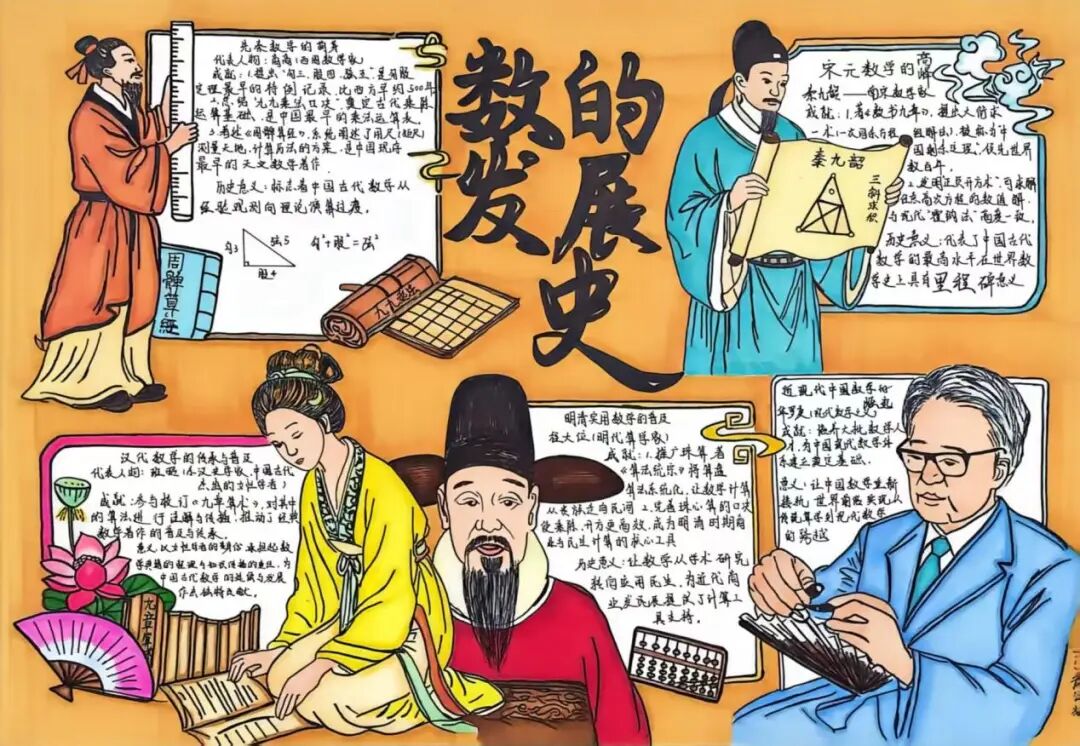 数学的发展史
先秦数学的萌芽
代表人物：商高（西周数学家）
成就：1.提出"勾三、股四、弦五"，是勾股
定理最早的特例记录，比西方早约500年
2.总结"九九乘法口诀"，奠定古代乘除
运算基础，是中国最早的乘法运算表。
3.著述《周髀算经》，系统阐述了用尺（矩尺）
测量天地，计算历法的方案，是中国现存
最早的天文数学著作
历史意义：标志着中国古代数学从
经验观测向理论演算过渡。
勾3
弦5
股4
勾²+股²=弦²
周髀算经
九九乘法
宋元数学的高峰
秦九韶——南宋数学家
成就：1.著《数书九章》，提出大衍求
一术（一次同余方程组解法），被称为"中
国剩余定理"，领先世界
数百年。
2.发明正负开方术，可求解
任意高次方程的数值解，
与现代"霍纳法"高度一致。
历史意义：代表了中国古代
数学的最高水平在世界数
学史上具有里程碑意义
秦九韶
三斜求积
汉代数学的传承与普及
代表人物：班昭（东汉史学家，中国古代
杰出的女性学者）
成就：参与校订《九章算术》，对其中
的算法进行注解与传播，推动了经典
数学著作的普及与传承。
意义：以女性学者的身份，承担起数
学典籍的整理与知识传播的重任，为
中国古代数学的延续与发展
作出独特贡献。
九章算
明清实用数学的普及
程大位（明代算学家）
成就：1.推广珠算著
《算法统宗》将算盘
算法系统化，让数学计算
从贵族走向民间 2.完善珠心算的口诀
使乘除、开方更高效，成为明清时期商
业与民生计算的核心工具
历史意义：让数学从学术研究
转向应用民生，为近代商
业发展提供了计算工
具支持。
近现代中国数学的崛起
华罗庚（现代数学之父）
成就：培养大批数学人
才，为中国现代数学体
系建立奠定基础。
意义：让中国数学重新
接轨世界前沿实现从
传统算学到现代数学
的跨越